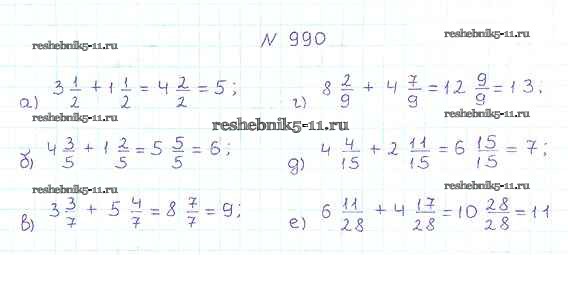 N 990
reshebnik5-11.ru
reshebnik5-11.ru
а) 3 1/2 + 1 1/2 = 4 2/2 = 5;
г) 8 2/9 + 4 7/9 = 12 9/9 = 13;
reshebnik5-11.ru
б) 4 3/5 + 1 2/5 = 5 5/5 = 6;
д) 4 4/15 + 2 11/15 = 6 15/15 = 7;
reshebnik5-11.ru
reshebnik5-11.ru
в) 3 3/7 + 5 4/7 = 8 7/7 = 9;
е) 6 11/28 + 4 17/28 = 10 28/28 = 11